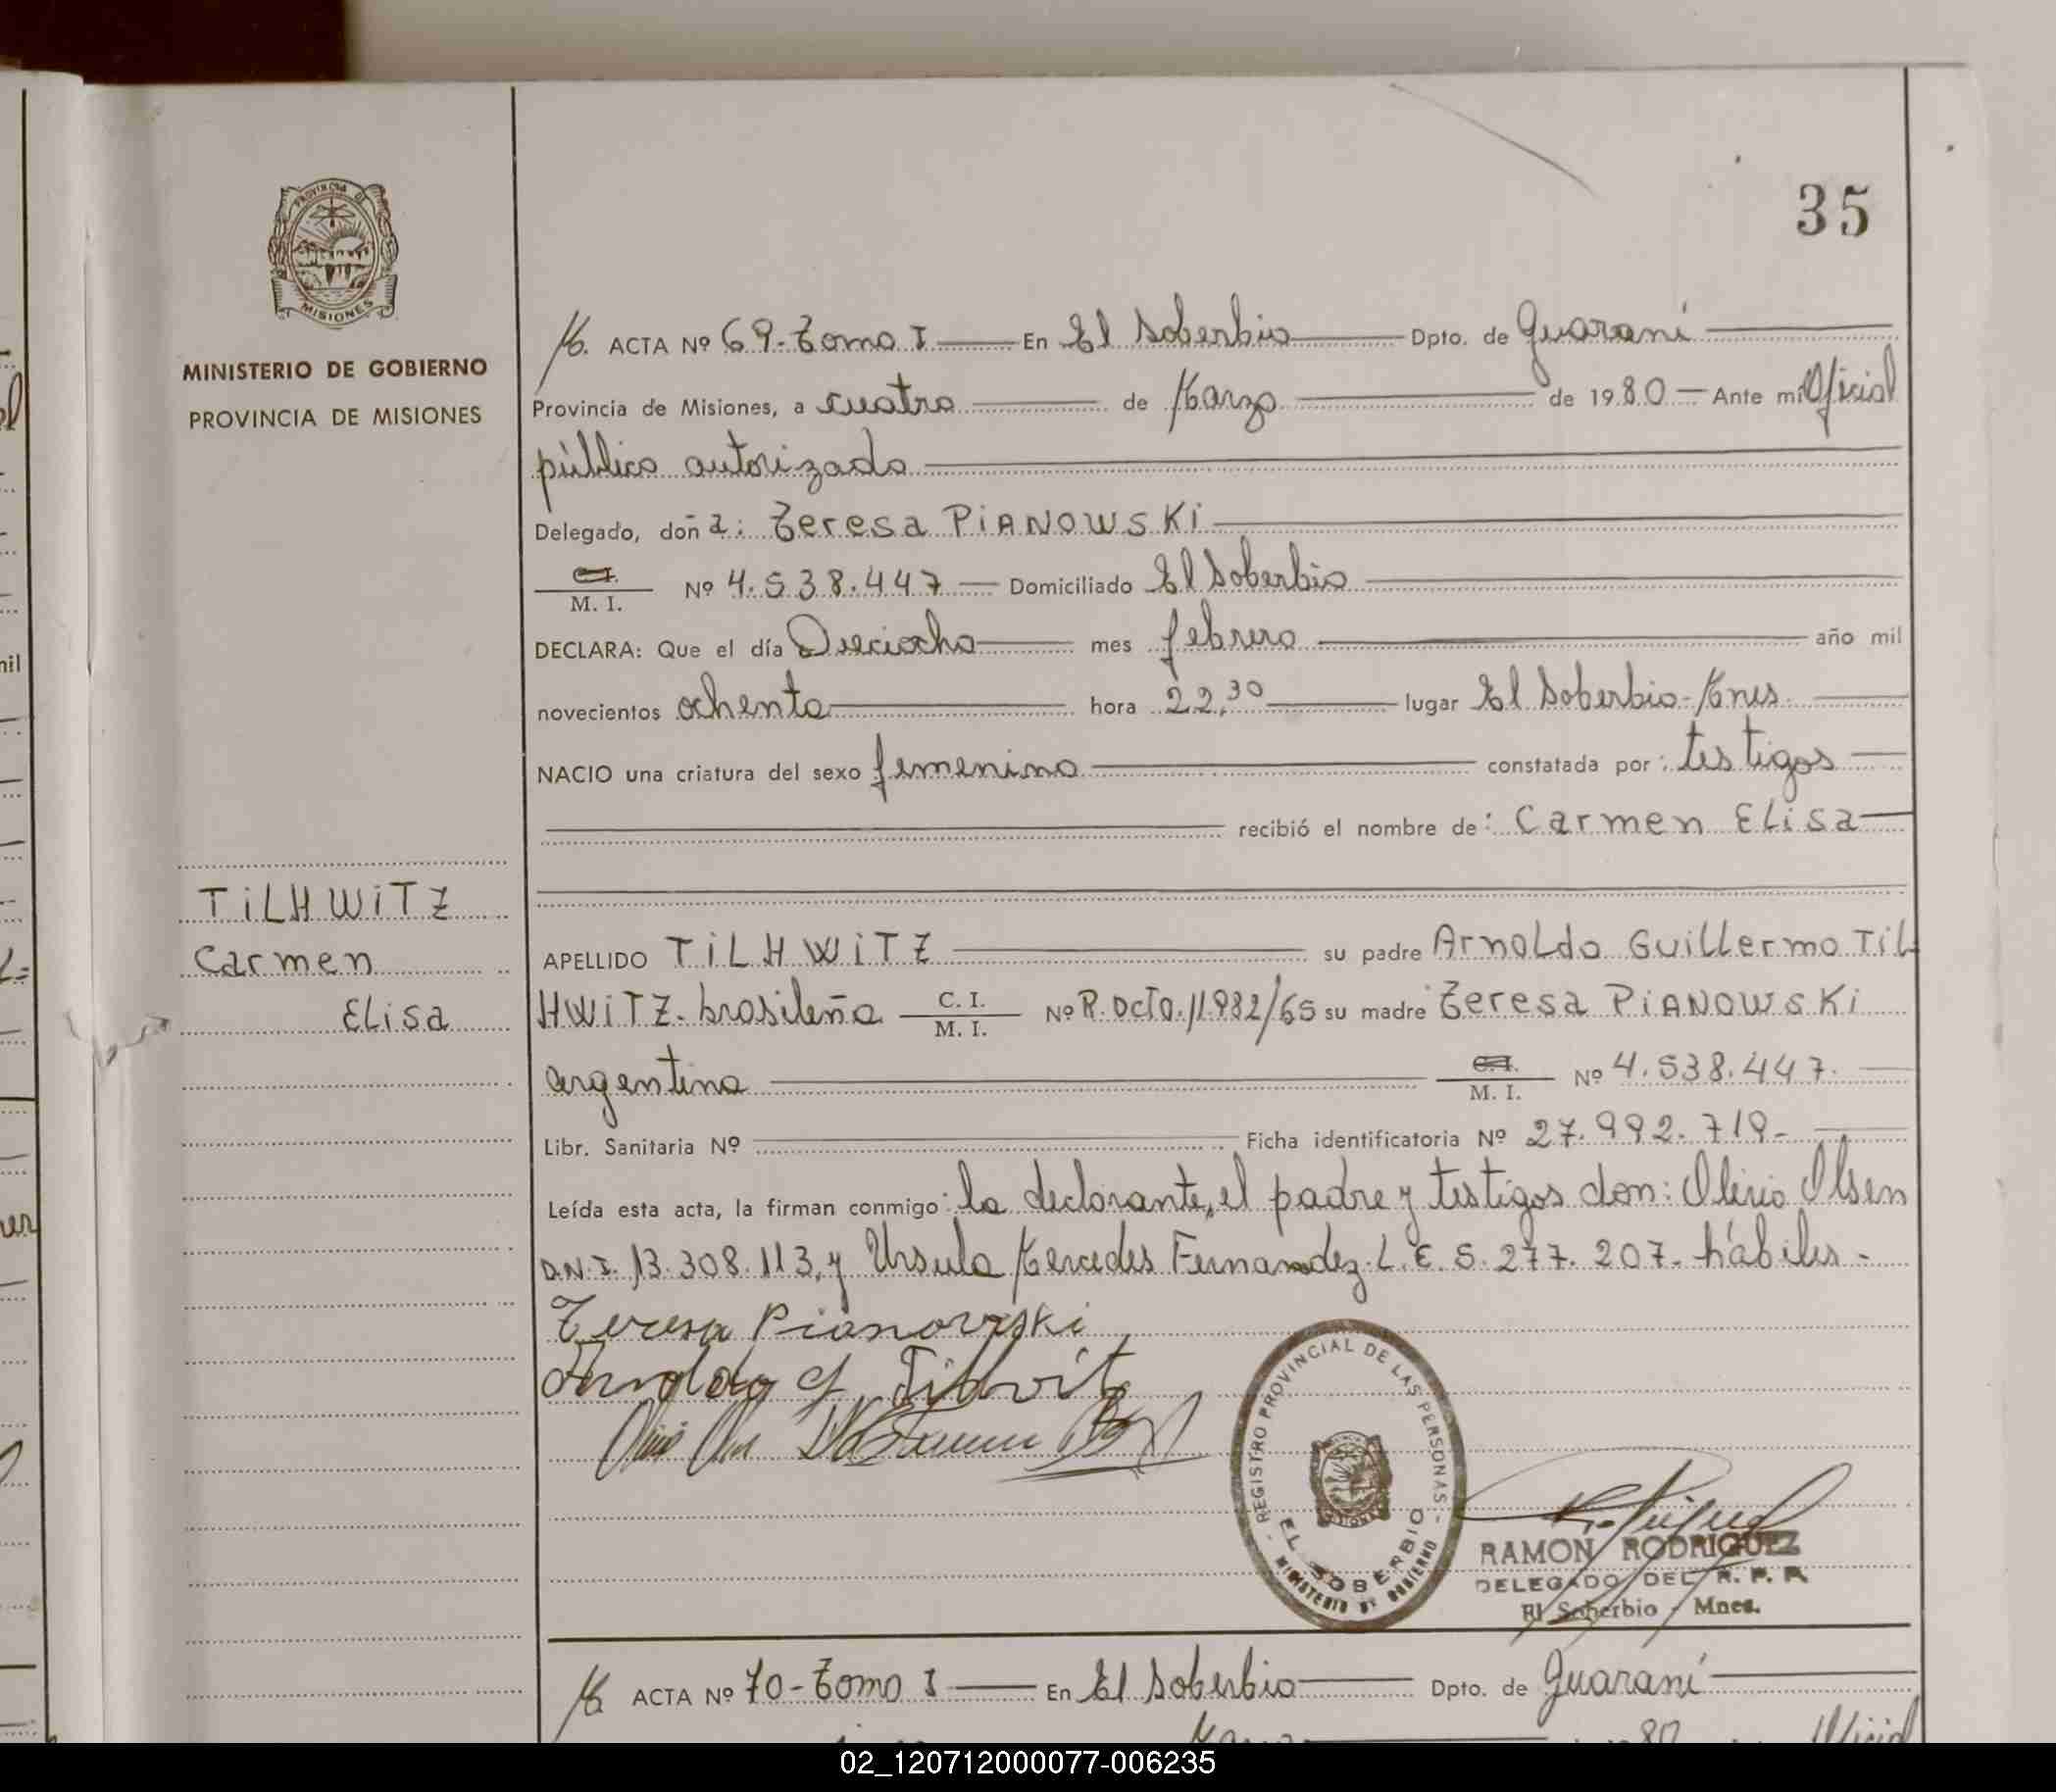 35
PROVINCIA DE
MISIONES
MINISTERIO DE GOBIERNO
PROVINCIA DE MISIONES
ACTA Nº 69-Tomo I En El Soberbio Dpto. de Guaraní
Provincia de Misiones, a cuatro de Marzo de 1980 Ante mi Oficial
público autorizado
Delegado, doña: Teresa PiANOWSKi
C.I. M. I. Nº 4.538.447 Domiciliado El Soberbio
DECLARA: Que el día Dieciocho mes febrero año mil
novecientos ochenta hora 22,30 lugar El Soberbio-Mnes
NACIO una criatura del sexo femenino constatada por: testigos
recibió el nombre de: Carmen ELisa
TiLHWiTZ
Carmen
ELisa
APELLIDO TiLHWiTZ su padre ArnoLdo GuiLLermo TiL-
HWiTZ. brasileña C. I. M. I. Nº R. OcTo. 11.982/65 su madre Teresa PiANOWSKi
argentina C.I. M. I. Nº 4.538.447.
Libr. Sanitaria Nº Ficha identificatoria Nº 27.992.719-
Leída esta acta, la firman conmigo: la declarante, el padre y testigos don: Olirio Olsen
D.N.I. 13.308.113, y Ursula Mercedes Fernandez. L.E. 5.277.207. hábiles-
Teresa Pianovski
Arnoldo G. Tilvit
REGISTRO PROVINCIAL DE LAS PERSONAS
EL SOBERBIO
MINISTERIO DE GOBIERNO
RAMON RODRIGUEZ
DELEGADO DEL R. P. P.
El Soberbio - Mnes.
ACTA Nº 70-Tomo I En El Soberbio Dpto. de Guaraní
02_120712000077-006235